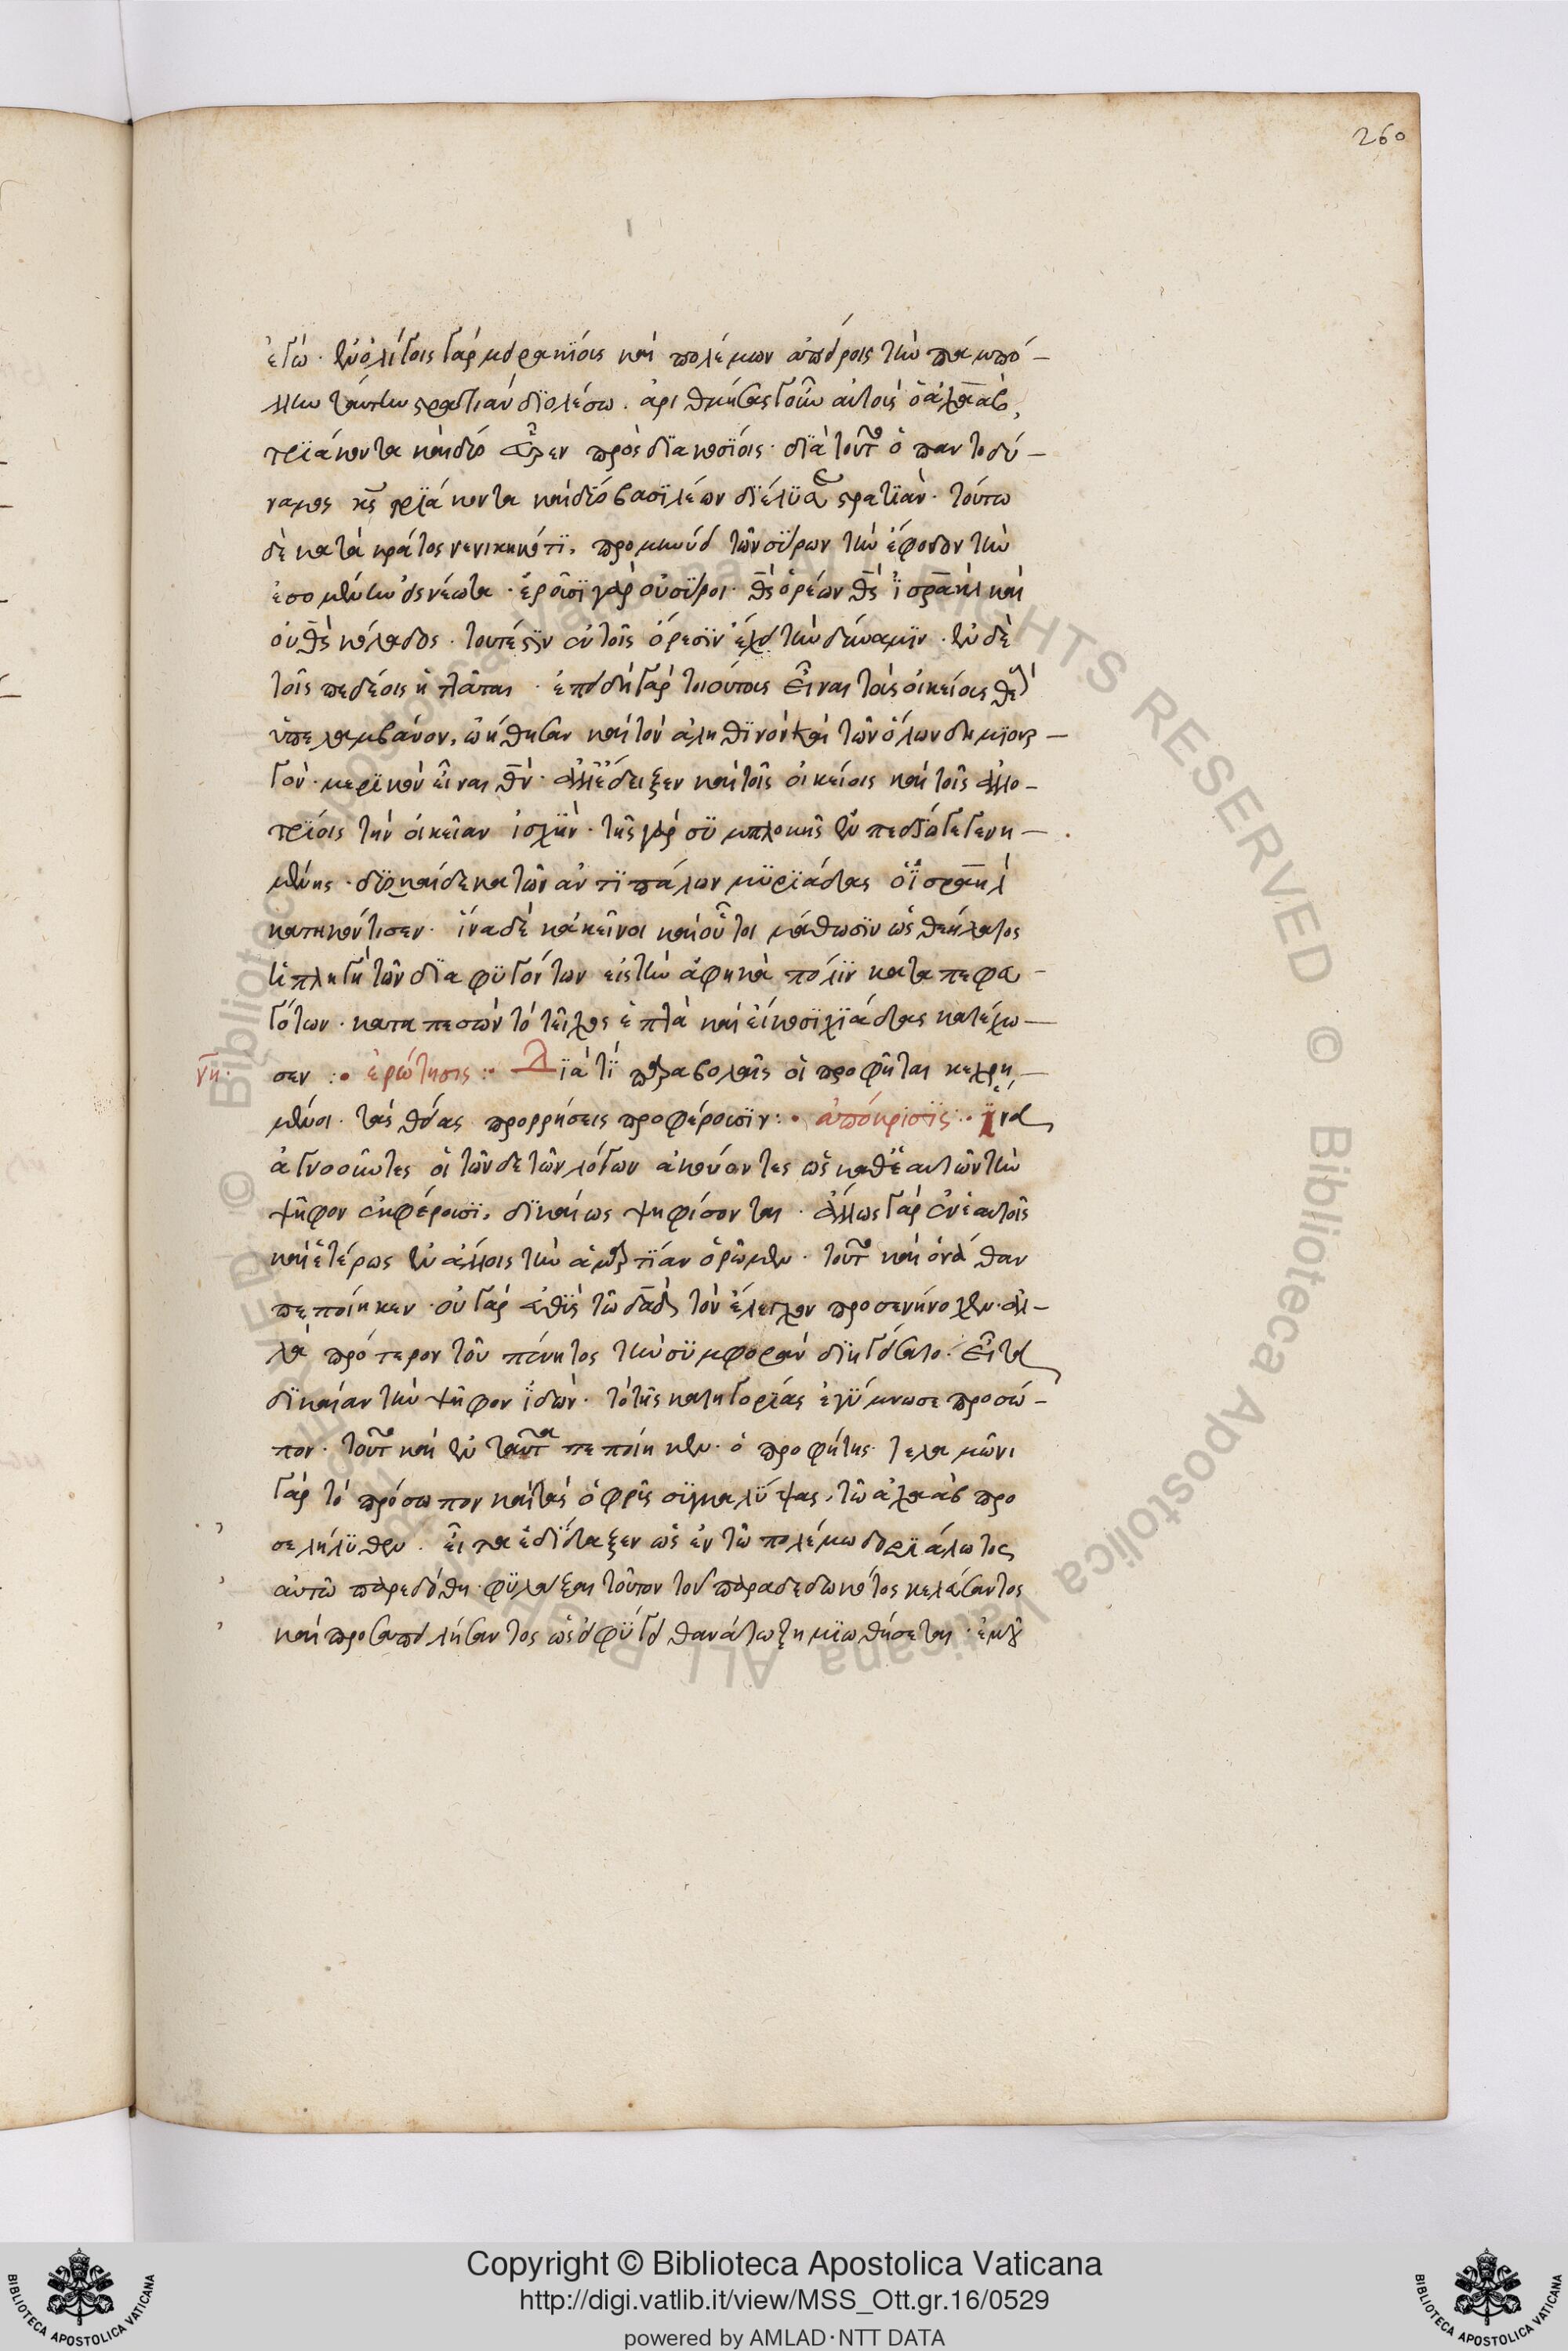 260
ἐγώ· ἐν ὀλίγοις γὰρ μειρακίοις καὶ πολέμων ἀπείροις τὴν παμπό-
λλην ταύτην στρατιὰν διολέσω. ἀριθμήσας γοῦν αὐτοὺς ὁ ἀχαὰβ,
τριάκοντα καὶ δύο εὗρεν πρὸς διακοσίοις· διὰ τοῦτο ὁ παντοδύ-
ναμος κς τριάκοντα καὶ δύο βασιλέων διέλυσε στρατιάν· τούτω
δὲ κατὰ κράτος νενικηκότι, προμηνύει τῶν σύρων τὴν ἔφοδον τὴν
ἐσομένην εἰς νέωτα· ἐροῦσι γὰρ οἱ σύροι· θς ὀρέων θς ἰσραηλ καὶ
οὐ θς κοιλάδος· τουτέστιν ἐν τοῖς ὄρεσιν ἔχει τὴν δύναμιν· ἐν δὲ
τοῖς πεδίοις ἡττᾶται· ἐπειδὴ γὰρ τοιούτους εἶναι τοὺς οἰκείους θεοὺς
ὑπελάμβανον, ὠήθησαν καὶ τὸν ἀληθινὸν καὶ τῶν ὅλων δημιουρ-
γὸν· μερικὸν εἶναι θν· ἀλλ' ἔδειξεν καὶ τοῖς οἰκείοις καὶ τοῖς ἀλλο-
τρίοις τὴν οἰκείαν ἰσχύν· τῆς γὰρ συμπλοκῆς ἐν πεδίῳ γεγενη-
μένης· δυοκαίδεκα τῶν ἀντιπάλων μυριάδας ὁ ἰσραηλ
κατηκόντισεν· ἵνα δὲ κἀκεῖνοι καὶ οὗτοι μάθωσιν ὡς θεήλατος
ἡ πληγὴ τῶν διαφυγόντων εἰς τὴν ἀφηκὰ πόλιν καταπεφευ-
γότων· καταπεσὼν τὸ τεῖχος ἑπτὰ καὶ εἴκοσι χιλιάδας κατέχω-
νη· σεν :· ἐρώτησις :· Διὰ τί παραβολαῖς οἱ προφῆται κεχρη-
μένοι· τὰς θείας προρρήσεις προφέρουσιν :· ἀπόκρισις :· ἵνα
ἀγνοοῦντες οἱ τῶνδε τῶν λόγων ἀκούοντες ὡς καθ' ἑαυτῶν τὴν
ψῆφον ἐκφέρουσι, δικαίως ψηφίσονται· ἄλλως γὰρ ἐν ἑαυτοῖς
καὶ ἑτέρως ἐν ἄλλοις τὴν ἁμαρτίαν ὁρῶμεν· τοῦτο καὶ ὁ νάθαν
πεποίηκεν· οὐ γὰρ εὐθὺς τῶ δαδ τὸν ἔλεγχον προσενήνοχεν· ἀλ-
λὰ πρότερον τοῦ πένητος τὴν συμφορὰν διηγήσατο· εἶτα
δικαίαν τὴν ψῆφον ἰδὼν· τὸ τῆς κατηγορίας ἐγύμνωσε προσώ-
πον· τοῦτο καὶ ἐν ταῦτα πεποίηκεν· ὁ προφήτης· τελαμῶνι
γὰρ τὸ πρόσωπον καὶ τὰς ὀφρῦς συγκαλύψας, τῶ ἀχαὰβ προ
σελήλυθεν· εἶτα ἐδίδαξεν ὡς ἐν τῶ πολέμω δοριάλωτος
αὐτῶ παρεδόθη· φυλάξαι τοῦτον τοῦ παραδεδωκότος κελεύσαντος
καὶ προσαπειλήσαντος ὡς εἰ φύγοι θανάτω ζημιωθήσεται· ἐμοῦ